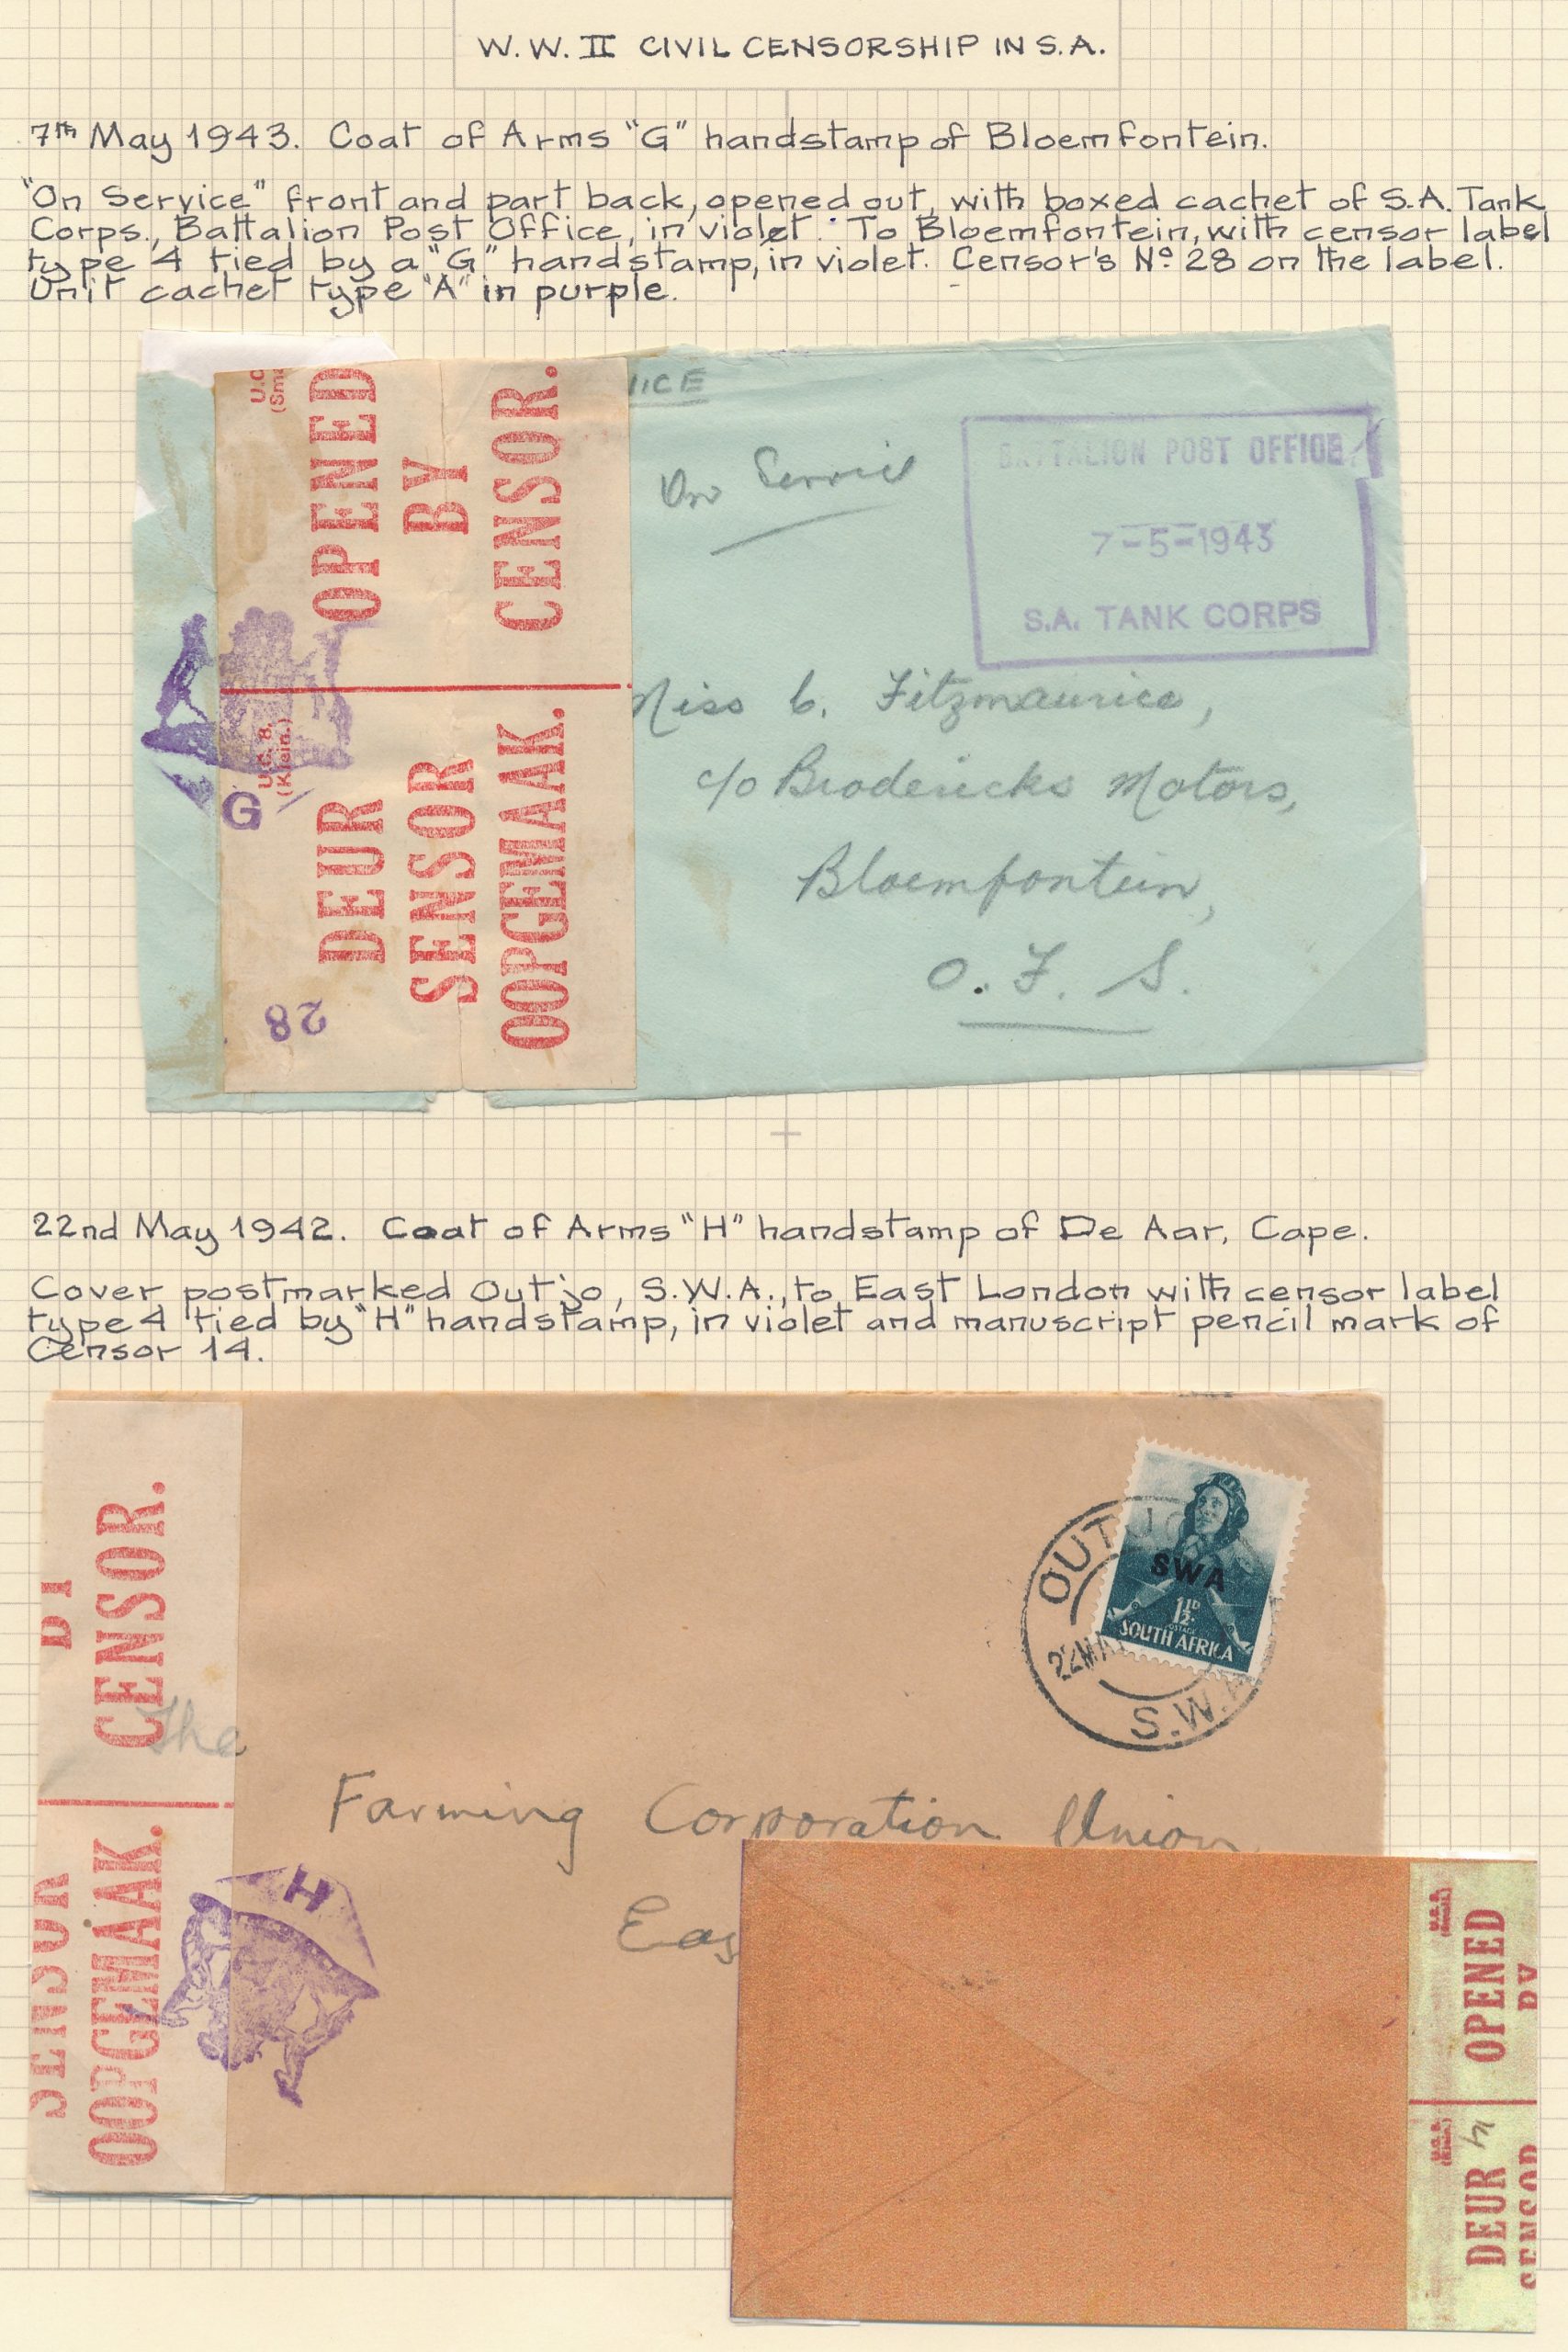 W.W. II CIVIL CENSORSHIP IN S.A.
7th May 1943. Coat of Arms "G" handstamp of Bloemfontein.
"On Service" front and part back, opened out, with boxed cachet of S.A. Tank
Corps., Battalion Post Office, in violet. To Bloemfontein, with censor label
type 4 tied by a "G" handstamp, in violet. Censor's Nº 28 on the label.
Unit cachet type "A" in purple.
OPENED
BY
CENSOR.
U.C. 8.
(Klein.)
DEUR
SENSOR
OOPGEMAAK.
G
28
VICE
On Service
BATTALION POST OFFICE
7-5-1943
S.A. TANK CORPS
Miss C. Fitzmaurice,
c/o Brodericks Motors,
Bloemfontein,
O. F. S.
22nd May 1942. Coat of Arms "H" handstamp of De Aar, Cape.
Cover postmarked Outjo, S.W.A., to East London with censor label
type 4 tied by "H" handstamp, in violet and manuscript pencil mark of
Censor 14.
BY
CENSOR.
SENSOR
OOPGEMAAK.
H
OUTJO
22 MA
S.W.A
SWA
1½D
POSTAGE
SOUTH AFRICA
The
Farming Corporation Union
Eas
OPENED
BY
DEUR
SENSOR
14